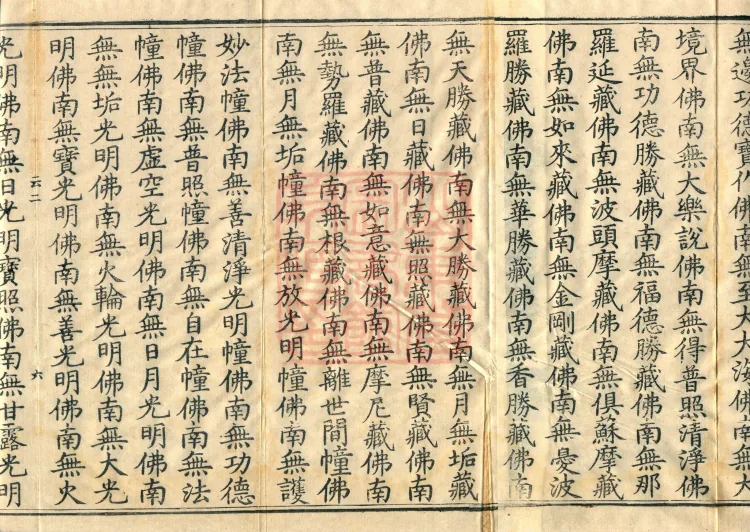 無邊功德寶作佛南無至大大海佛南無大
境界佛南無大樂說佛南無得普照清淨佛
南無功德勝藏佛南無福德勝藏佛南無那
羅延藏佛南無波頭摩藏佛南無俱蘇摩藏
佛南無如來藏佛南無金剛藏佛南無憂波
羅勝藏佛南無華勝藏佛南無香勝藏佛南
無天勝藏佛南無大勝藏佛南無月無垢藏
佛南無日藏佛南無照藏佛南無賢藏佛南
無普藏佛南無如意藏佛南無摩尼藏佛南
無勢羅藏佛南無根藏佛南無離世間幢佛
南無月無垢幢佛南無放光明幢佛南無護
妙法幢佛南無善清淨光明幢佛南無功德
幢佛南無普照幢佛南無自在幢佛南無法
幢佛南無虛空光明佛南無日月光明佛南
無無垢光明佛南無火輪光明佛南無大光
明佛南無寶光明佛南無善光明佛南無火
六
光明佛南無日光明寶照佛南無甘露光明